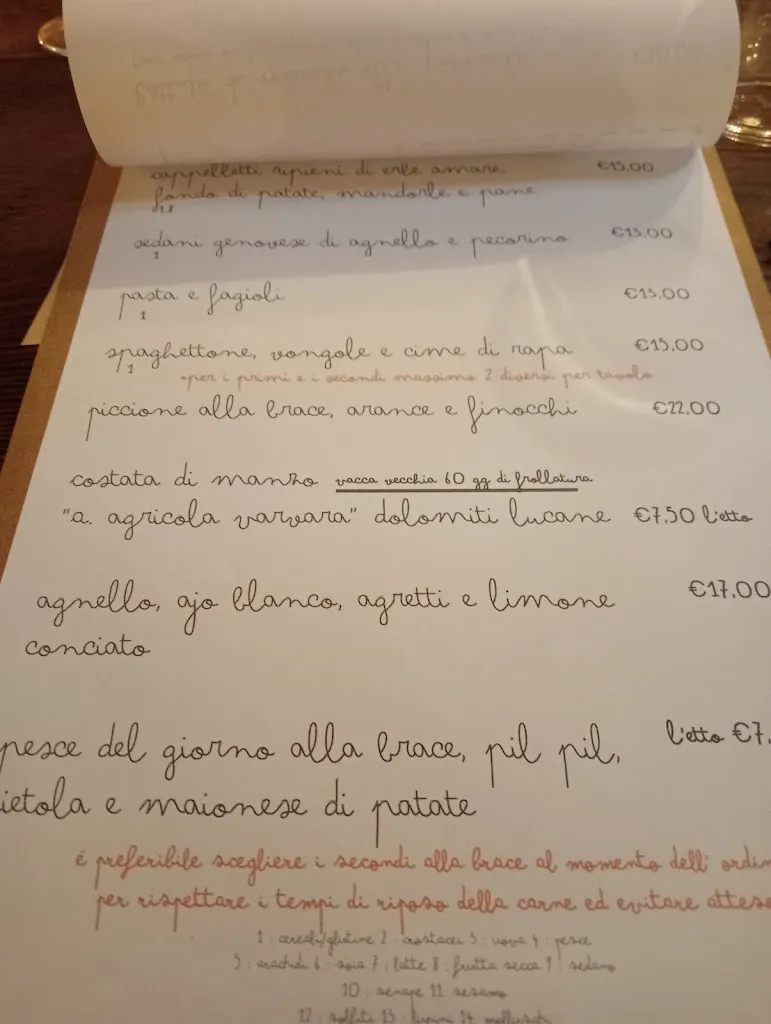 cappelletti ripieni di erbe amare, €15,00
fondo di patate, mandorle e pane
sedani genovese di agnello e pecorino €15,00
1
pasta e fagioli €15,00
1
spaghettone, vongole e cime di rapa €15,00
1
*per i primi e i secondi massimo 2 diversi per tavolo
piccione alla brace, arance e finocchi €22,00
costata di manzo vacca vecchia 60 gg di frollatura
"a. agricola varvara" dolomiti lucane €7,50 l'etto
agnello, ajo blanco, agretti e limone €17,00
conciato
pesce del giorno alla brace, pil pil, l'etto €7,
ietola e maionese di patate
é preferibile scegliere i secondi alla brace al momento dell' ordin
per rispettare i tempi di riposo della carne ed evitare attese
1 : cereali/glutine 2 : crostacei 3 : uova 4 : pesce
5 : arachidi 6 : soia 7 : latte 8 : frutta secca 9 : sedano
10 : senape 11 sesamo
12 : solfiti 13 : lupini 14 molluschi